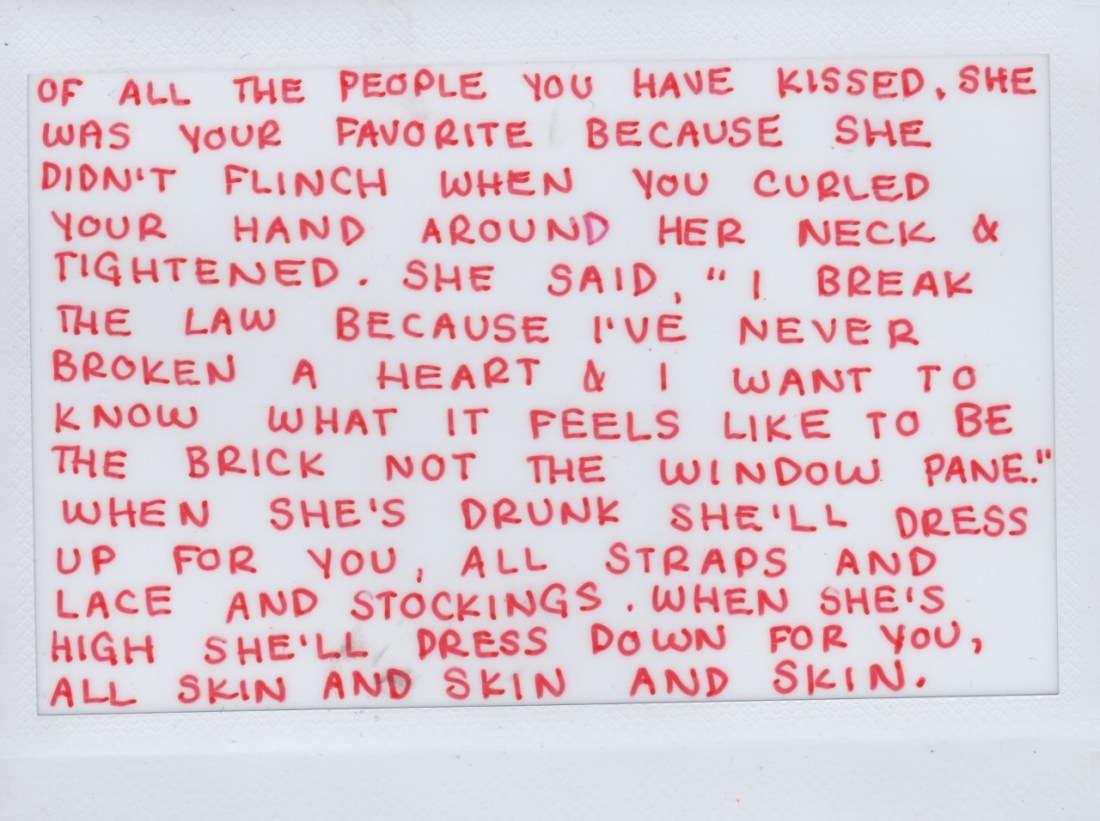 OF ALL THE PEOPLE YOU HAVE KISSED, SHE
WAS YOUR FAVORITE BECAUSE SHE
DIDN'T FLINCH WHEN YOU CURLED
YOUR HAND AROUND HER NECK &
TIGHTENED. SHE SAID, "I BREAK
THE LAW BECAUSE I'VE NEVER
BROKEN A HEART & I WANT TO
KNOW WHAT IT FEELS LIKE TO BE
THE BRICK NOT THE WINDOW PANE."
WHEN SHE'S DRUNK SHE'LL DRESS
UP FOR YOU, ALL STRAPS AND
LACE AND STOCKINGS. WHEN SHE'S
HIGH SHE'LL DRESS DOWN FOR YOU,
ALL SKIN AND SKIN AND SKIN.